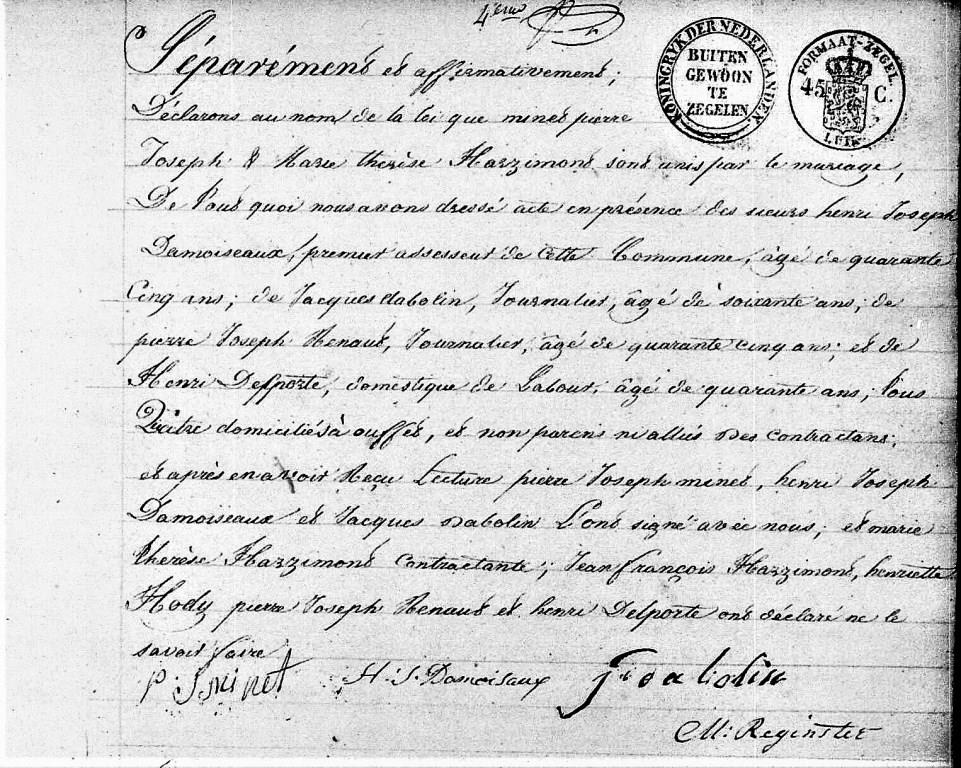 4eme
KONINGRYK DER NEDERLANDEN
BUITEN
GEWOON
TE
ZEGELEN
FORMAAT-ZEGEL
45 C.
LUIK
Séparément et affirmativement;
Déclarons au nom de la loi que minet pierre
Joseph & Marie thérèse Hazzimont sont unis par le mariage,
De tout quoi nous avons dressé acte en présence des sieurs henri Joseph
Damoiseaux, premier assesseur de cette Commune, âgé de quarante
Cinq ans; de Jacques dabolin, Journalier, âgé de soixante ans; de
pierre Joseph Renaud, Journalier, âgé de quarante cinq ans; et de
Henri Delporte, domestique de Labour, âgé de quarante ans; tous
Quatre domiciliés à ouffet, et non parens ni alliés des contractans;
et après en avoir Reçu Lecture pierre Joseph minet, henri Joseph
Damoiseaux et Jacques dabolin L'ont signé avec nous; et marie
thérèse Hazzimont Contractante; Jean françois Hazzimont, henriette
Hody pierre Joseph Renaud et henri Delporte ont déclaré ne le
savoir faire
P. J minet H. J. Damoisaux J dabolin
M: Reginster